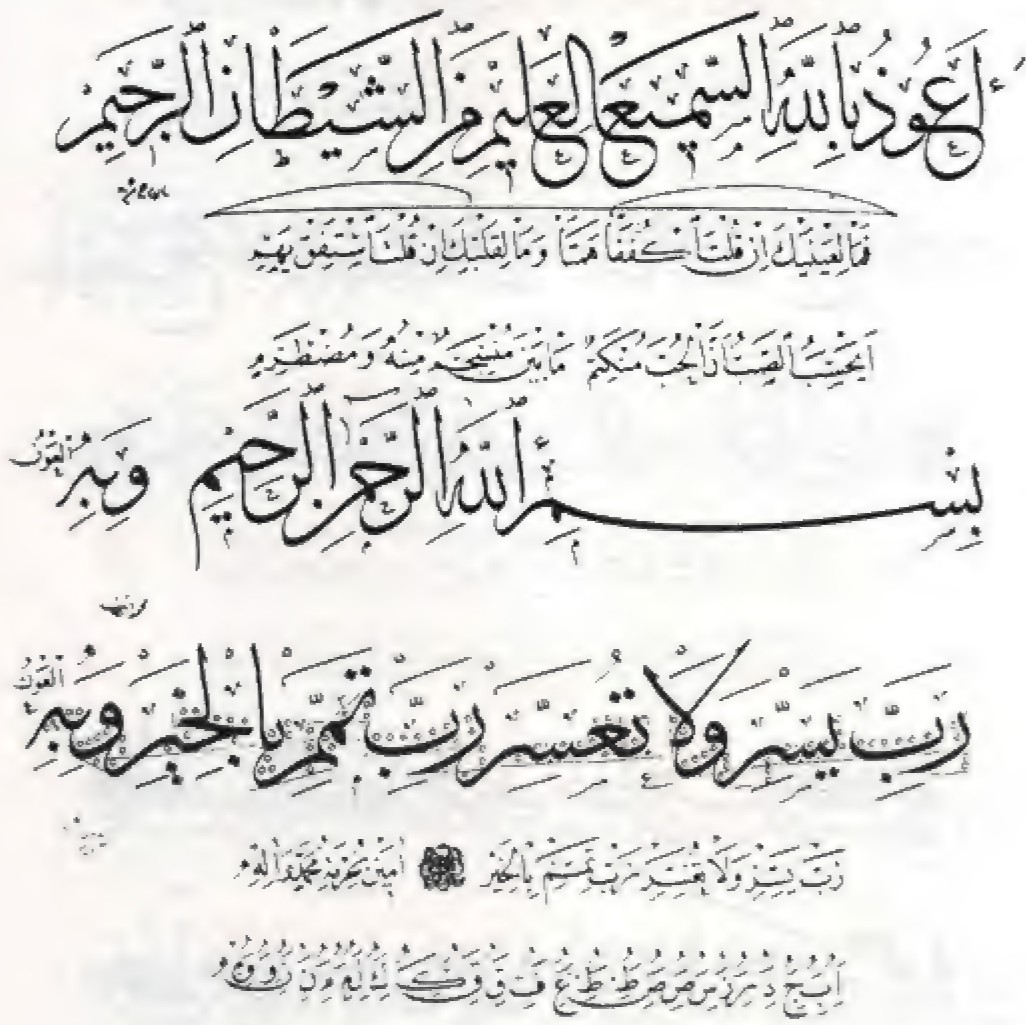 أعوذ بالله السميع العليم من الشيطان الرجيم
فَمَا لِعَيْنَيْكَ اِنْ قُلْتَ اكْفُفَا هَمَتَا وَمَا لِقَلْبِكَ اِنْ قُلْتَ اسْتَفِقْ يَهِمِ
اَيَحْسَبُ الصَّبُّ اَنَّ الْحُبَّ مُنْكَتِمٌ مَا بَيْنَ مُنْسَجِمٍ مِنْهُ وَمُضْطَرِمِ
بسم الله الرحمن الرحيم وبه العون
رب يسر ولا تعسر رب تمم بالخير وبه العون
رَبِّ يَسِّرْ وَلَا تُعَسِّرْ رَبِّ تَمِّمْ بِالْخَيْرِ اٰمين بحرمة محمد وآله
ا ب ج د ر س ص ط ع ف ق و ك